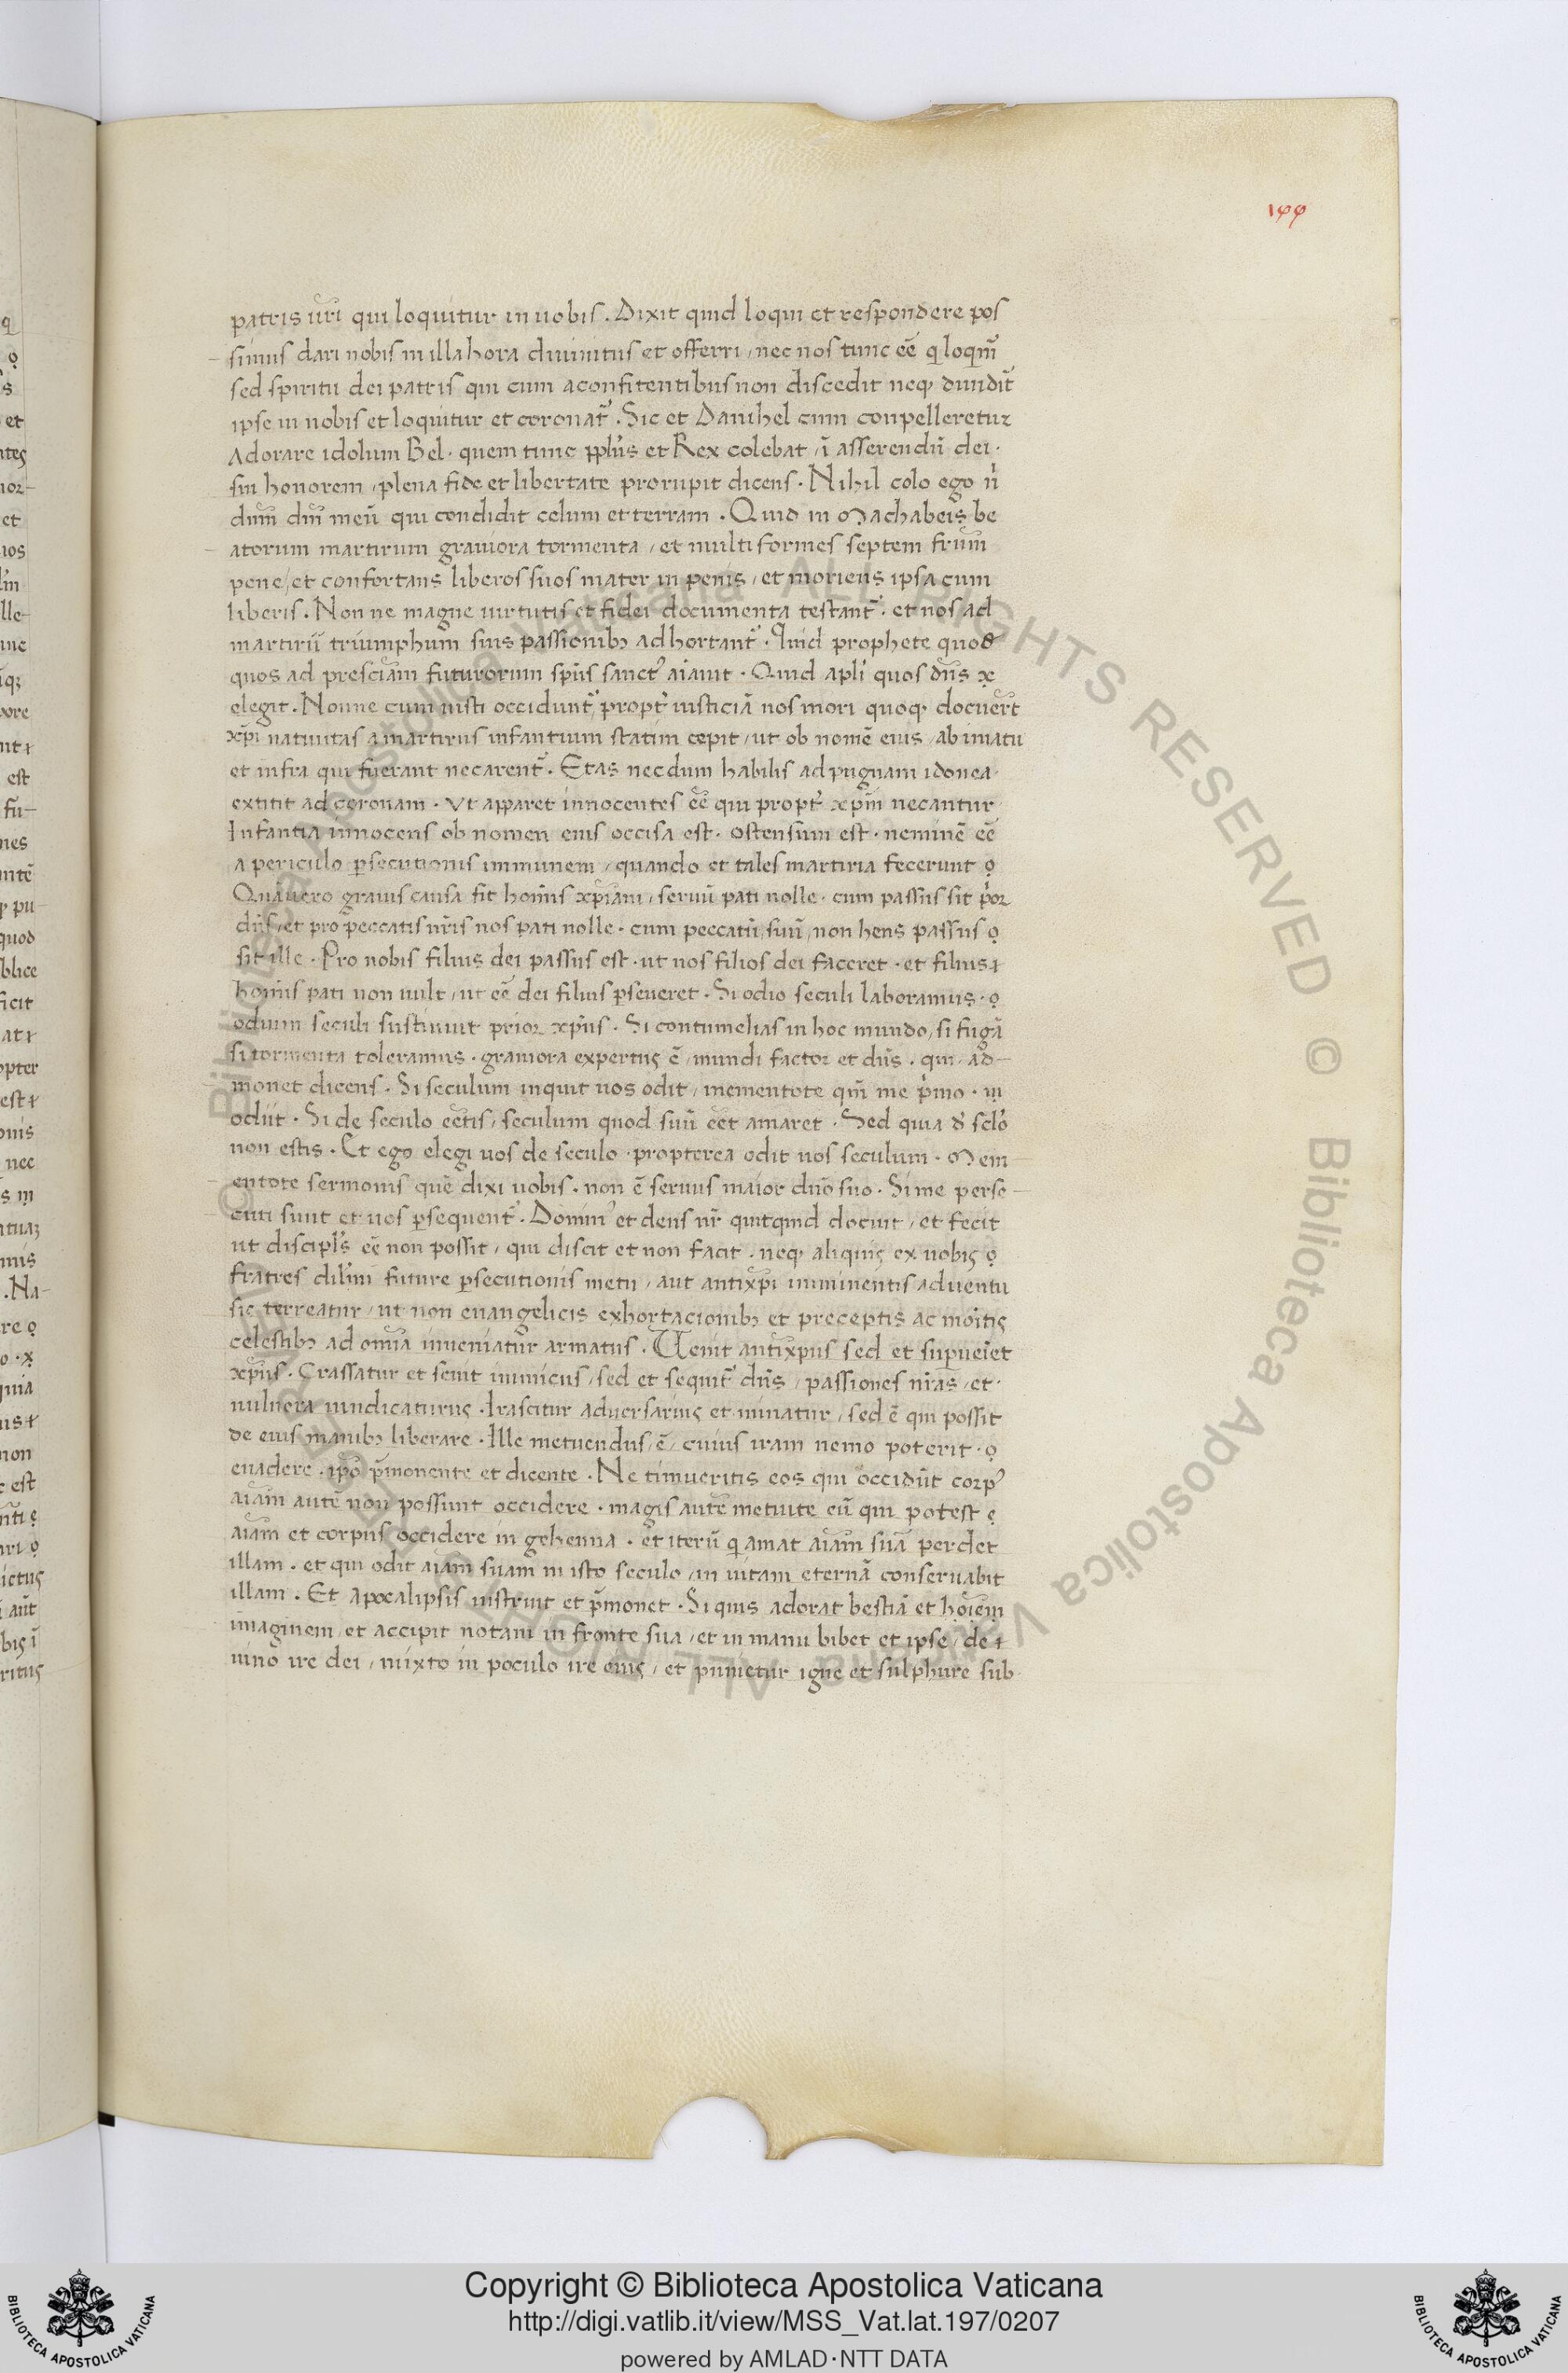 199
patris ur̃i qui loquitur in uobis . Dixit quid loqui et respondere pos
simus dari nobis in illa hora diuinitus et offerri / nec nos tunc eẽ q̇ loqm̃
sed spiritu dei patris qui cum aconfitentibus non discedit neq; diuidit̃
ipse in nobis et loquitur et coronat̃ . Sic et Danihel cum conpelleretur
Adorare idolum Bel · quem tunc ppl̃us et Rex colebat / ĩ asserendũ dei ·
sui honorem / plena fide et libertate prorupit dicens · Nihil colo ego ṅ
dum̃ dm̃ meũ qui condidit celum et terram . Quid in Machabeis be
atorum martirum grauiora tormenta / et multiformes septem frum̃
pene / et confortans liberos suos mater in penis / et moriens ipsa cum
liberis . Non ne magne uirtutis et fidei documenta testant̃ · et nos ad
martiriũ triumphum suis passionib; adhortant̃ · Quid prophete quod
quos ad presciam̃ futurorum spũs sanct9 aiauit · Quid apl̃i quos dñs x̣
elegit . Nonne cum iusti occidunt̃ propt̃ iusticiã nos mori quoq; docuer̃t
xp̃i natiuitas a martiriis infantium statim cepit / ut ob nomẽ eius / ab imatu
et infra qui fuerant necarent̃ . Etas necdum habilis ad pugnam idonea ·
extitit ad coronam . Vt apparet innocentes eẽ qui propt̃ xpm̃ necantur ·
Infantia innocens ob nomen eius occisa est · ostensum est · neminẽ eẽ
a periculo p̱secutionis immunem / quando et tales martiria fecerunt ọ
Quã uero grauis causa sit homĩs xp̃iani / seruũ pati nolle · cum passus sit p̃or
dñs / et pro peccatis nr̃is nos pati nolle · cum peccatũ suũ / non hens passus ọ
sit ille . Pro nobis filius dei passus est · ut nos filios dei faceret · et filius ɫ
homĩs pati non uult / ut eẽ dei filius p̱seueret . Si odio seculi laboramus · ọ
odium seculi sustinuit prior xp̃us . Si contumelias in hoc mundo / si fugã
si tormenta toleramus . grauiora expertus ẽ / mundi factor et dñs . qui · ad-
monet dicens . Si seculum inquit uos odit / mementote qm̃ me p̃mo · ṃ
odiit · Si de seculo eẽtis / seculum quod suũ eẽt amaret . Sed quia d̃ sclõ
non estis . Et ego elegi uos de seculo · propterea odit uos seculum · Mem-
entote sermonis quẽ dixi uobis . non ẽ seruus maior duõ suo . Si me perse-
cuti sunt et uos p̱sequent̃ . Domin9 et deus nr̃ quitquid docuit / et fecit
ut discipl̃s eẽ non possit / qui discit et non facit . neq; aliquis ex uobis ọ
fratres dil̃mi future p̱secutionis metu / aut antixp̃i imminentis aduentu
sic terreatur / ut non euangelicis exhortacionib; et preceptis ac moitis̃
celestib; ad omĩa inueniatur armatus . Uenit antixp̃us sed et sup̱ueĩet
xp̃us . Crassatur et seuit inimicus / sed et sequit̃ dñs / passiones nr̃as / et ·
uulnera uindicaturus . Irascitur aduersarius et minatur / sed ẽ qui possit
de eius manib; liberare · Ille metuendus / ẽ / cuius iram nemo poterit · ọ
euadere . ipõ p̃monente et dicente . Ne timueritis eos qui occidũt corp9
aiam̃ autẽ non possunt occidere · magis autẽ metuite eũ qui potest ọ
aiam̃ et corpus occidere in gehenna . et iterũ q̇ amat aiam̃ suã perdet
illam . et qui odit aiam̃ suam in isto seculo / in uitam eternã conseruabit
illam . Et apocalipsis instruit et p̃monet . Si quis adorat bestiã et hoĩem
imaginem / et accipit notam in fronte sua / et in manu bibet et ipse / de ɫ
uino ire dei / mixto in poculo ire eius / et punietur igne et sulphure sub
Copyright © Biblioteca Apostolica Vaticana
http://digi.vatlib.it/view/MSS_Vat.lat.197/0207
powered by AMLAD·NTT DATA